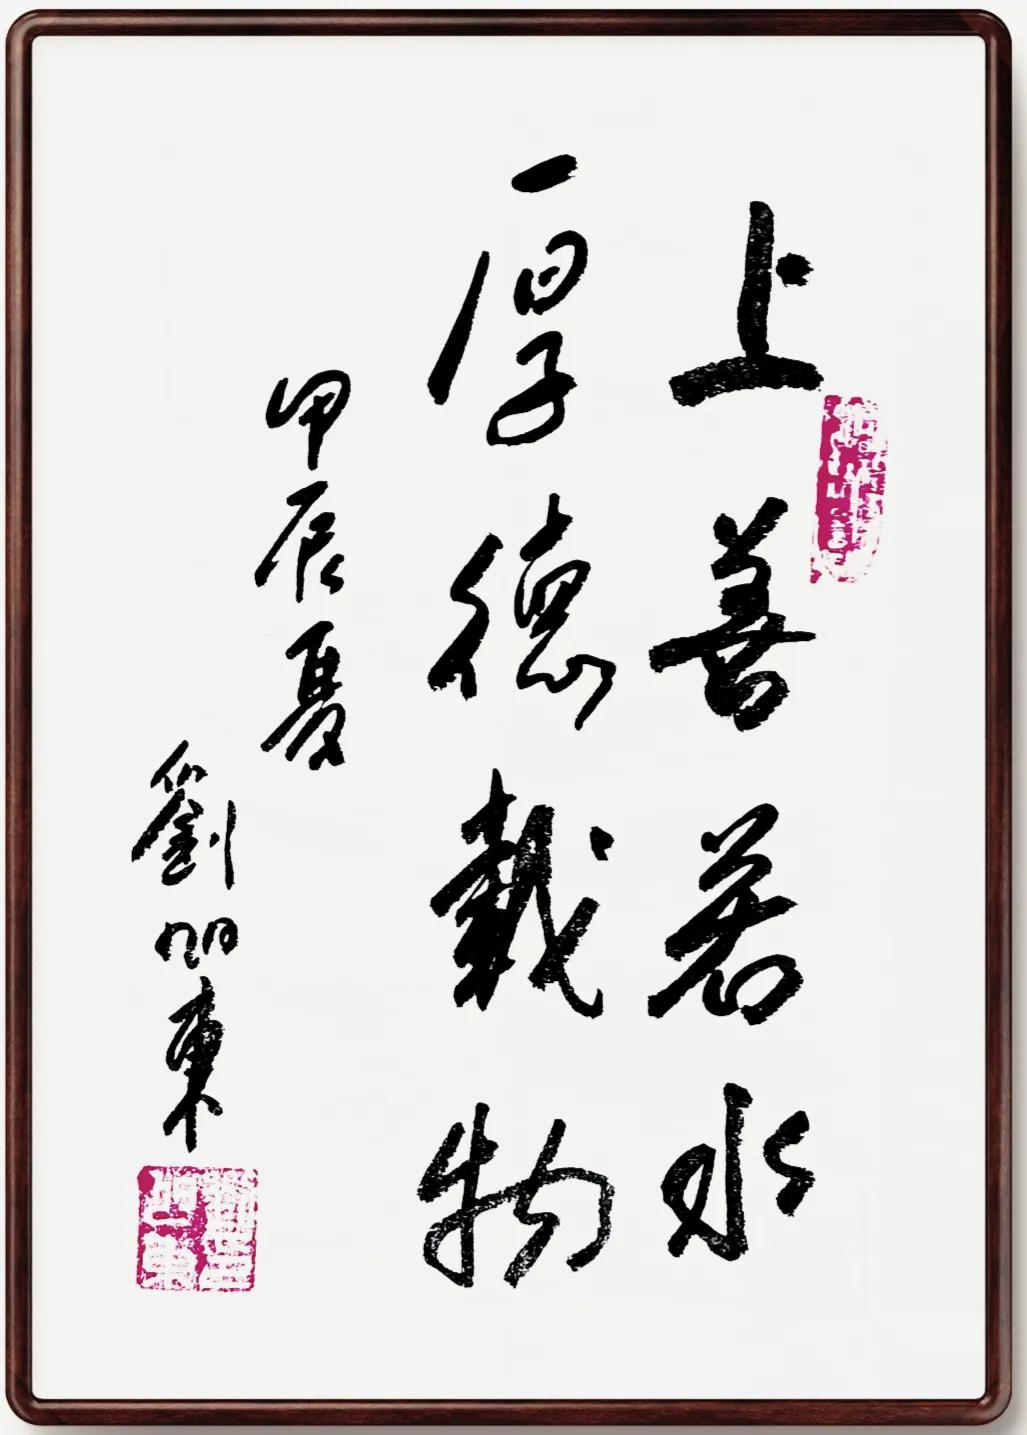 上善若水
厚德载物
甲辰夏
劉旭東